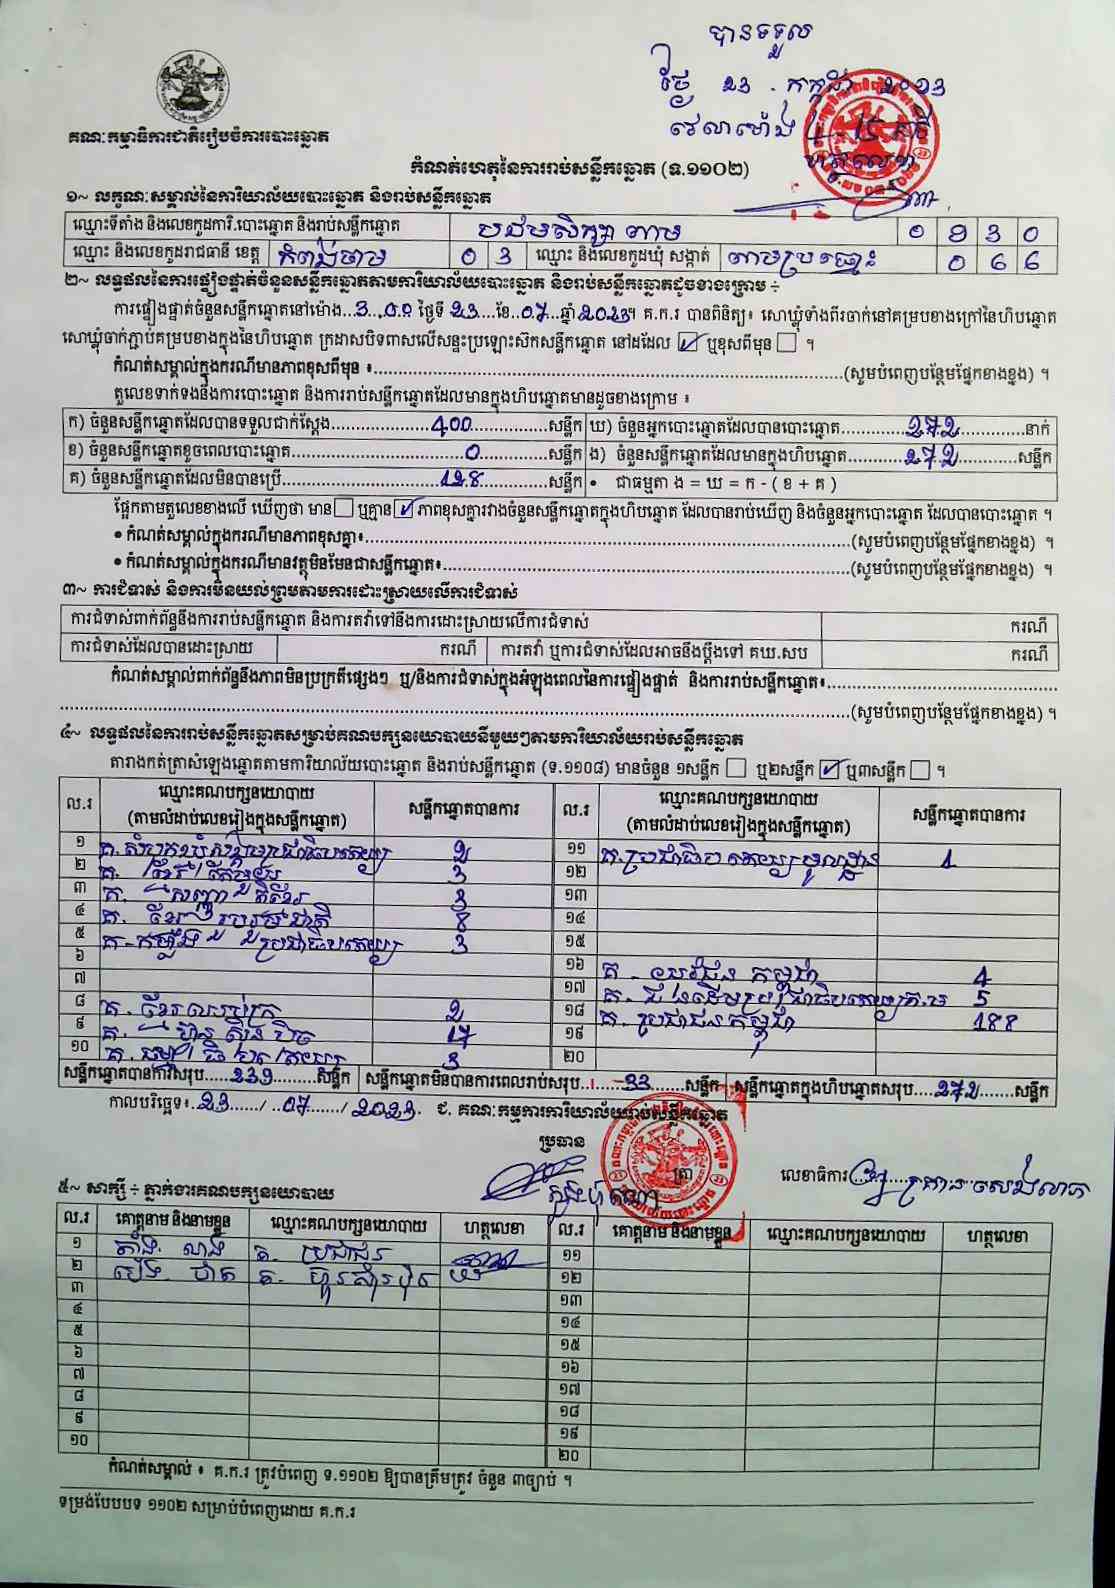 បានទទួល
ថ្ងៃ 23 . កក្កដា 2023
វេលាម៉ោង
គណៈកម្មាធិការជាតិរៀបចំការបោះឆ្នោត
កំណត់ហេតុនៃការរាប់សន្លឹកឆ្នោត (ទ.១១០២)
១~ លក្ខណៈសម្គាល់នៃការិយាល័យបោះឆ្នោត និងរាប់សន្លឹកឆ្នោត
ឈ្មោះទីតាំង និងលេខកូដការិ.បោះឆ្នោត និងរាប់សន្លឹកឆ្នោត បឋមសិក្សា តាម 0 9 3 0
ឈ្មោះ និងលេខកូដរាជធានី ខេត្ត កំពង់ចាម 0 3 ឈ្មោះ និងលេខកូដឃុំ សង្កាត់ 0 6 6
២~ លទ្ធផលនៃការផ្ទៀងផ្ទាត់ចំនួនសន្លឹកឆ្នោតតាមការិយាល័យបោះឆ្នោត និងរាប់សន្លឹកឆ្នោតដូចខាងក្រោម ÷
ការផ្ទៀងផ្ទាត់ចំនួនសន្លឹកឆ្នោតនៅម៉ោង...3...00 ថ្ងៃទី 23....ខែ..07...ឆ្នាំ 2023។ គ.ក.រ បានពិនិត្យ៖ សោឃ្លុំទាំងពីរចាក់នៅគម្របខាងក្រៅនៃហិបឆ្នោត
សោឃ្លុំចាក់ភ្ជាប់គម្របខាងក្នុងនៃហិបឆ្នោត ក្រដាសបិទពាសលើសន្ទះប្រឡោះស៊កសន្លឹកឆ្នោត នៅដដែល ☑ ឬខុសពីមុន ☐ ។
កំណត់សម្គាល់ក្នុងករណីមានភាពខុសពីមុន ៖......(សូមបំពេញបន្ថែមផ្នែកខាងខ្នង) ។
តួលេខទាក់ទងនឹងការបោះឆ្នោត និងការរាប់សន្លឹកឆ្នោតដែលមានក្នុងហិបឆ្នោតមានដូចខាងក្រោម ៖
ក) ចំនួនសន្លឹកឆ្នោតដែលបានទទួលជាក់ស្តែង......400......សន្លឹក ឃ) ចំនួនអ្នកបោះឆ្នោតដែលបានបោះឆ្នោត......272......នាក់
ខ) ចំនួនសន្លឹកឆ្នោតខូចពេលបោះឆ្នោត......0......សន្លឹក ង) ចំនួនសន្លឹកឆ្នោតដែលមានក្នុងហិបឆ្នោត......272......សន្លឹក
គ) ចំនួនសន្លឹកឆ្នោតដែលមិនបានប្រើ......128......សន្លឹក • ជាធម្មតា ង = ឃ = ក - ( ខ + គ )
ផ្អែកតាមតួលេខខាងលើ ឃើញថា មាន ☐ ឬគ្មាន ☑ ភាពខុសគ្នារវាងចំនួនសន្លឹកឆ្នោតក្នុងហិបឆ្នោត ដែលបានរាប់ឃើញ និងចំនួនអ្នកបោះឆ្នោត ដែលបានបោះឆ្នោត ។
• កំណត់សម្គាល់ក្នុងករណីមានភាពខុសគ្នា៖......(សូមបំពេញបន្ថែមផ្នែកខាងខ្នង) ។
• កំណត់សម្គាល់ក្នុងករណីមានវត្ថុមិនមែនជាសន្លឹកឆ្នោត៖......(សូមបំពេញបន្ថែមផ្នែកខាងខ្នង) ។
៣~ ការជំទាស់ និងការមិនយល់ព្រមតាមការដោះស្រាយលើការជំទាស់
ការជំទាស់ពាក់ព័ន្ធនឹងការរាប់សន្លឹកឆ្នោត និងការតវ៉ាទៅនឹងការដោះស្រាយលើការជំទាស់ ករណី
ការជំទាស់ដែលបានដោះស្រាយ ករណី ការតវ៉ា ឬការជំទាស់ដែលអាចនឹងប្តឹងទៅ គឃ.សប ករណី
កំណត់សម្គាល់ពាក់ព័ន្ធនឹងភាពមិនប្រក្រតីផ្សេងៗ ឬ/និងការជំទាស់ក្នុងអំឡុងពេលនៃការផ្ទៀងផ្ទាត់ និងការរាប់សន្លឹកឆ្នោត៖......
......(សូមបំពេញបន្ថែមផ្នែកខាងខ្នង) ។
៤~ លទ្ធផលនៃការរាប់សន្លឹកឆ្នោតសម្រាប់គណបក្សនយោបាយនីមួយៗតាមការិយាល័យរាប់សន្លឹកឆ្នោត
តារាងកត់ត្រាសំឡេងឆ្នោតតាមការិយាល័យបោះឆ្នោត និងរាប់សន្លឹកឆ្នោត (ទ.១១០៨) មានចំនួន ១សន្លឹក ☐ ឬ២សន្លឹក ☑ ឬ៣សន្លឹក ☐ ។
ល.រ ឈ្មោះគណបក្សនយោបាយ (តាមលំដាប់លេខរៀងក្នុងសន្លឹកឆ្នោត) សន្លឹកឆ្នោតបានការ ល.រ ឈ្មោះគណបក្សនយោបាយ (តាមលំដាប់លេខរៀងក្នុងសន្លឹកឆ្នោត) សន្លឹកឆ្នោតបានការ
១ គ.សំបុកឃ្មុំសង្គមប្រជាធិបតេយ្យ 2 ១១ គ.ប្រជាធិបតេយ្យមូលដ្ឋាន 1
២ គ. ខ្មែររួបរួម 3 ១២
៣ គ. 3 ១៣
៤ គ. ខ្មែររួបរួមជាតិ 8 ១៤
៥ គ-កម្លាំងប្រជាធិបតេយ្យ 3 ១៥
៦ ១៦ គ - យុវជនកម្ពុជា 4
៧ ១៧ គ. 5
៨ គ. ខ្មែរឈប់ក្រ 2 ១៨ គ. ប្រជាជនកម្ពុជា 188
៩ គ. ហ្វ៊ុនស៊ិនប៉ិច 17 ១៩
១០ គ. ធម្មាធិបតេយ្យ 3 ២០
សន្លឹកឆ្នោតបានការសរុប.....239.....សន្លឹក សន្លឹកឆ្នោតមិនបានការពេលរាប់សរុប.....33.....សន្លឹក សន្លឹកឆ្នោតក្នុងហិបឆ្នោតសរុប....272......សន្លឹក
កាលបរិច្ឆេទ៖..23....../..07....../ 2023. ជ. គណៈកម្មការការិយាល័យរាប់សន្លឹកឆ្នោត
ប្រធាន
ត្រា
លេខាធិការ
៥~ សាក្សី ÷ ភ្នាក់ងារគណបក្សនយោបាយ
ល.រ គោត្តនាម និងនាមខ្លួន ឈ្មោះគណបក្សនយោបាយ ហត្ថលេខា ល.រ គោត្តនាម និងនាមខ្លួន ឈ្មោះគណបក្សនយោបាយ ហត្ថលេខា
១ គ. ប្រជាជន ១១
២ គ. ហ្វ៊ុនស៊ិនប៉ិច ១២
៣ ១៣
៤ ១៤
៥ ១៥
៦ ១៦
៧ ១៧
៨ ១៨
៩ ១៩
១០ ២០
កំណត់សម្គាល់ ៖ គ.ក.រ ត្រូវបំពេញ ទ.១១០២ ឱ្យបានត្រឹមត្រូវ ចំនួន ៣ច្បាប់ ។
ទម្រង់បែបបទ ១១០២ សម្រាប់បំពេញដោយ គ.ក.រ